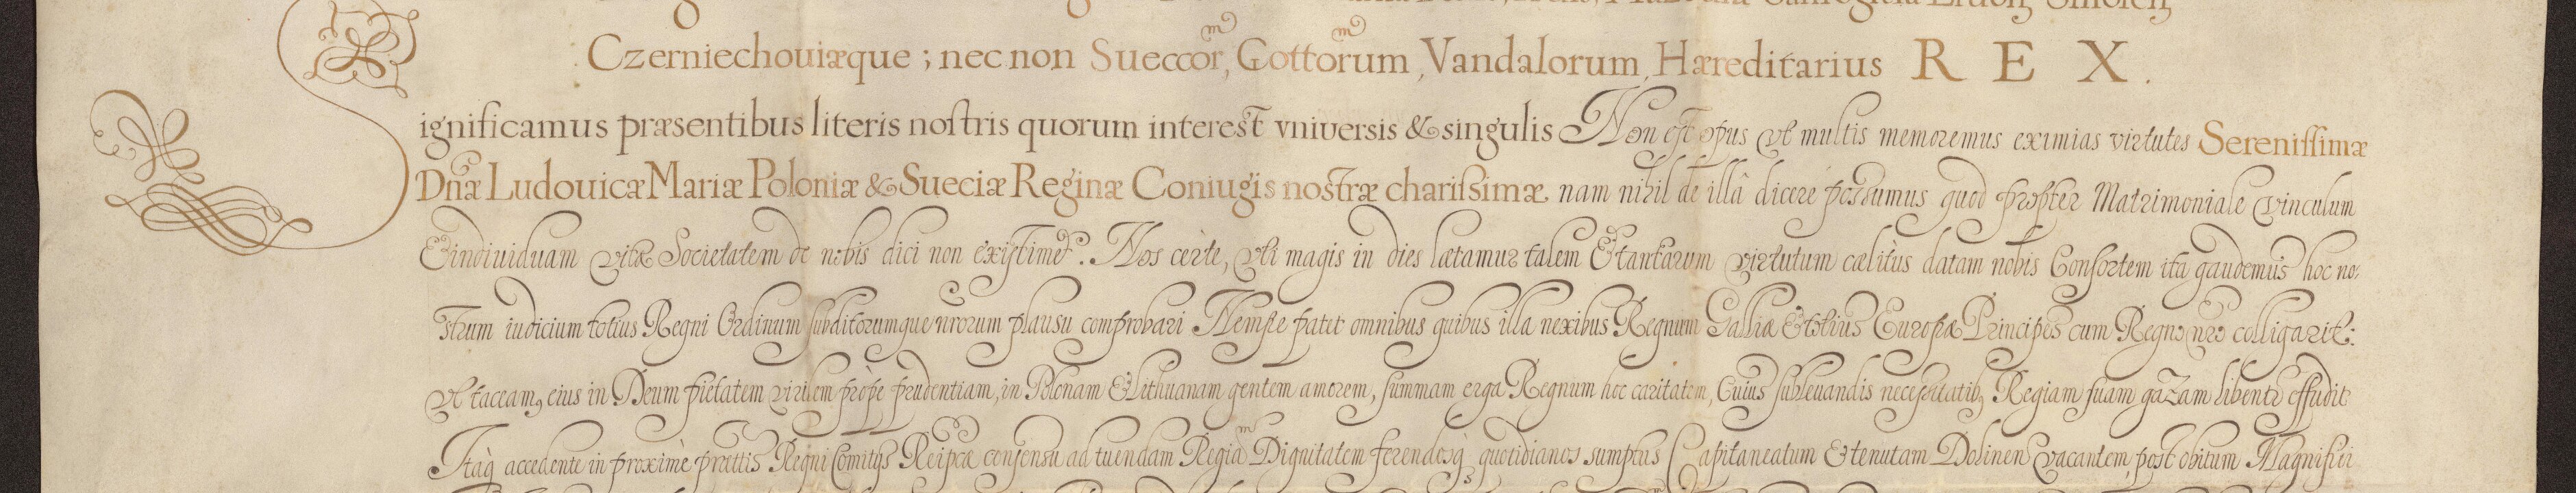 Czerniechouiæque ; nec non Sueccorm, Gottorum, Vandalorum, Hæreditarius REX.
Significamus præsentibus literis nostris quorum interest vniversis & singulis Non est opus vt multis memoremus eximias virtutes Serenissimæ
Dnæ Ludouicæ Mariæ Poloniæ & Sueciæ Reginæ Coniugis nostræ charissimæ nam nihil de illâ dicere possumus quod propter Matrimoniale vinculum
Et indiuiduam vitæ Societatem de nobis dici non existimet. Nos certe, vti magis in dies lætamur talem Et tantarum virtutum cælitùs datam nobis Consortem ita gaudemus hoc no-
strum iudicium totius Regni Ordinum subditorumque nrorum plausu comprobari Nempe patet omnibus quibus illa nexibus Regnum Galliæ Et totius Europæ Principes cum Regno nro colligarit:
Vt taceam, eius in Deum pietatem virilem pròpe prudentiam, in Polonam Et Lithuanam gentem amorem, summam erga Regnum hoc caritatem, Cuius subleuandis necessitatib, Regiam suam gaZam libentr effudit
Itaq accedente in proximè prættis Regni Comitijs Reipcæ consensu ad tuendam Regiam Dignitatem ferendosq quotidianos sumptus Capitaneatum Et tenutam Dolinen vacantem, post obitum Magnifici